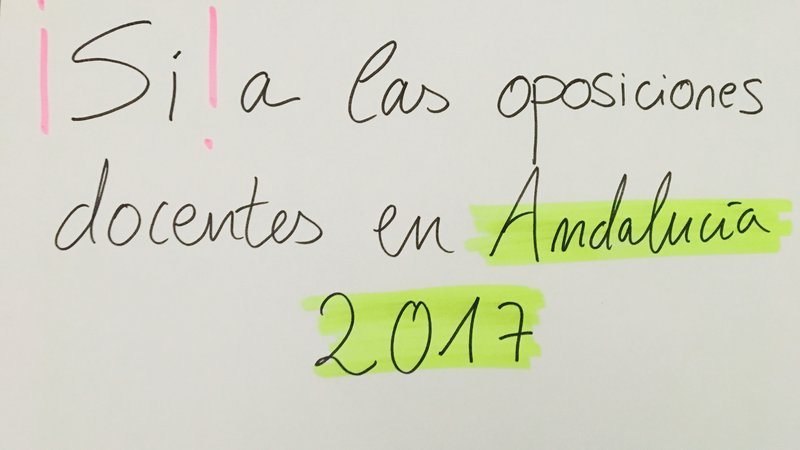 ¡Si! a las oposiciones
docentes en Andalucía
2017